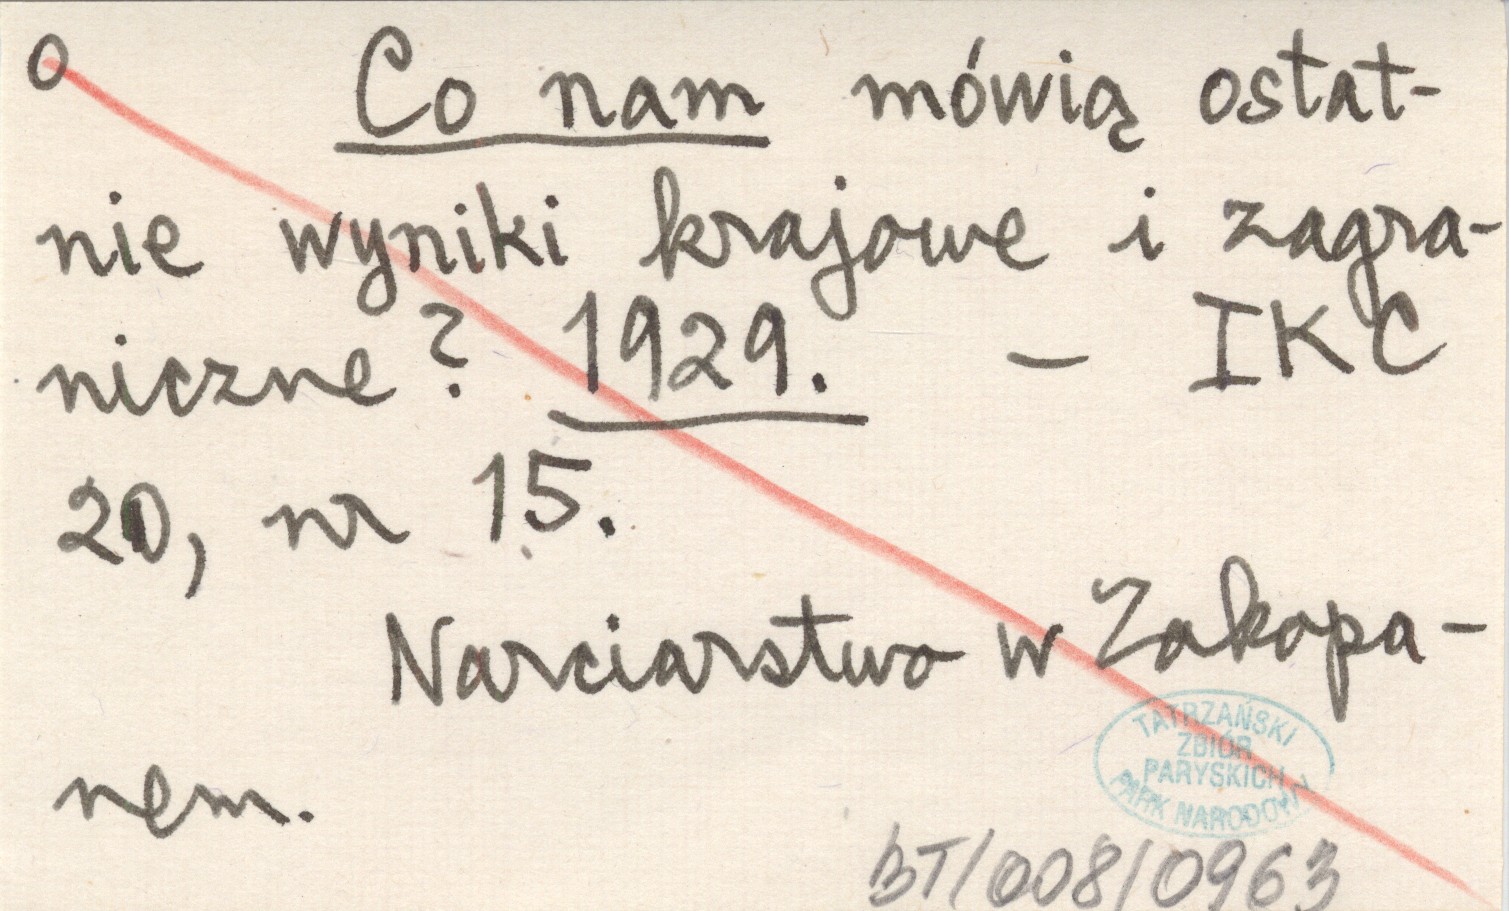 o Co nam mówią ostat-
nie wyniki krajowe i zagra-
niczne? 1929. – IKC
20, nr 15.
Narciarstwo w Zakopa-
nem.
TATRZAŃSKI
ZBIÓR
PARYSKICH
PARK NARODOWY
BT/008/0963